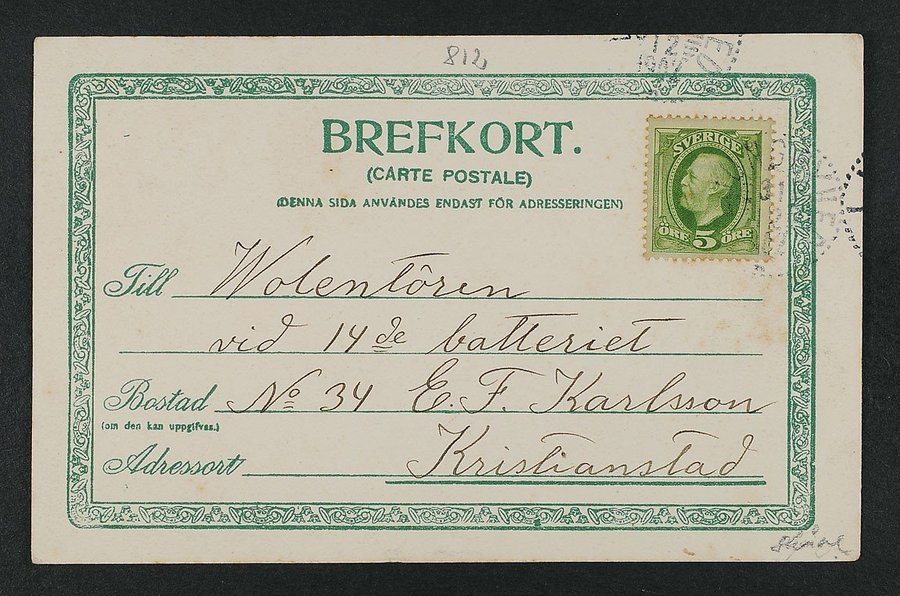 812
BREFKORT.
(CARTE POSTALE)
(DENNA SIDA ANVÄNDES ENDAST FÖR ADRESSERINGEN)
SVERIGE
ÖRE 5 ÖRE
Till Wolentören
vid 14de batteriet
Bostad No 34 E. F. Karlsson
(om den kan uppgifvas.)
Adressort Kristianstad